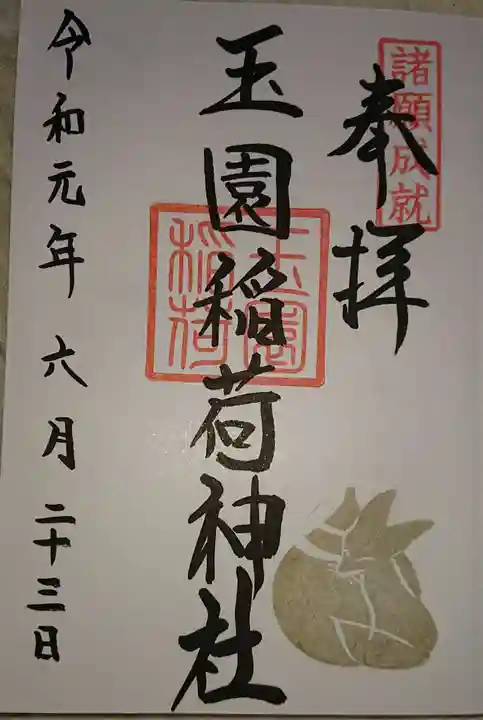 奉拝
諸願成就
玉園稲荷神社
玉園
稲荷
令和元年六月二十三日